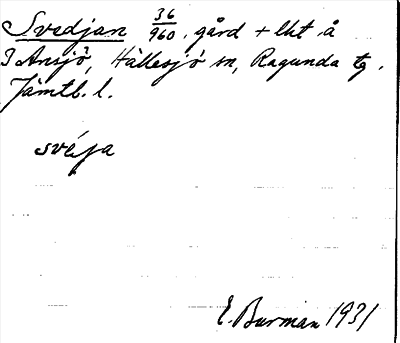 Svedjan 36/960. gård + lht å
3 Ansjö, Hällesjö sn, Ragunda tg.
Jämtl. l.
svéja
E. Burman 1931